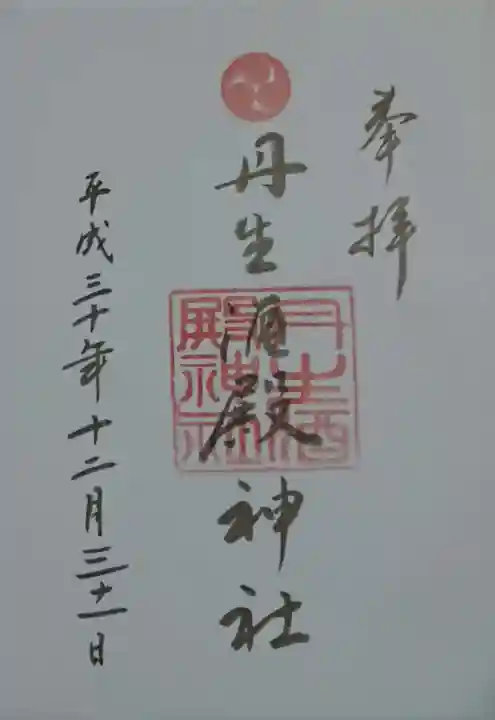 奉拝
丹生酒殿神社
丹生酒殿神社
平成三十年十二月三十一日